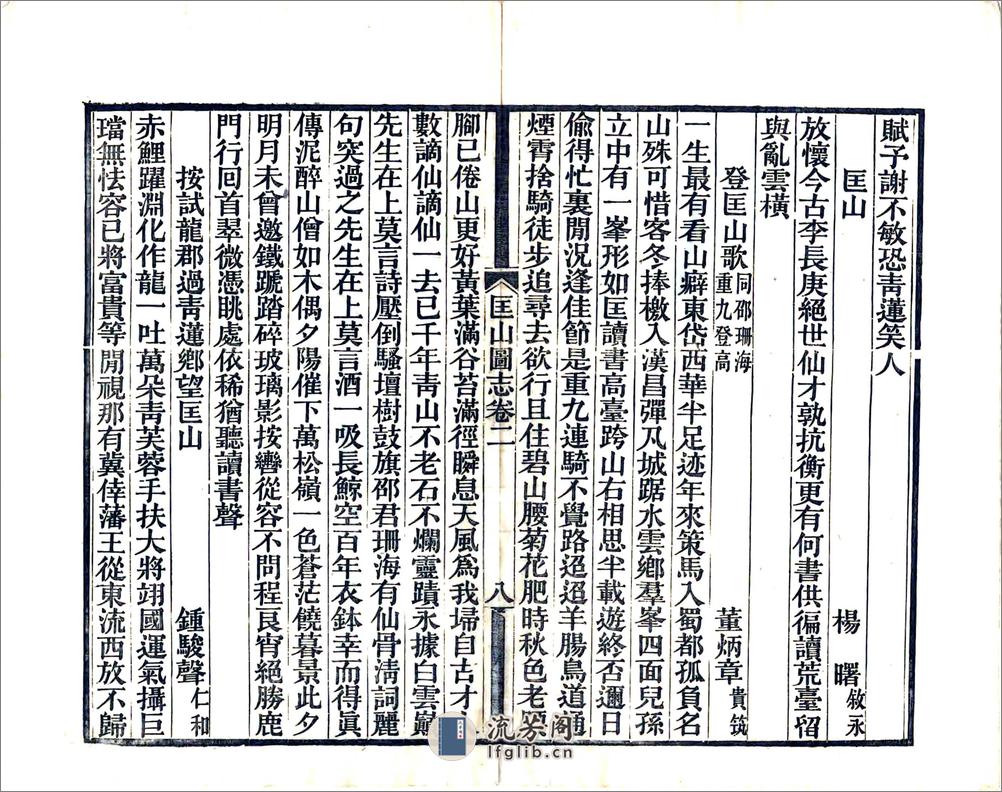 賦予謝不敏恐靑蓮笑人
匡山 楊曙敘永
放懷今古李長庚絕世仙才孰抗衡更有何書供徧讀荒臺留
與亂雲橫
登匡山歌同邵珊海重九登高 董炳章貴筑
一生最有看山癖東岱西華半足迹年來策馬入蜀都孤負名
山殊可惜客冬捧檄入漢昌彈凡城踞水雲鄉羣峯四面兒孫
立中有一峯形如匡讀書高臺跨山右相思半載遊終否邇日
偷得忙裏閒況逢佳節是重九連騎不覺路迢迢羊腸鳥道通
煙霄捨騎徒步追尋去欲行且住碧山腰菊花肥時秋色老
匡山圖志卷二
八
腳已倦山更好黃葉滿谷苔滿徑瞬息天風爲我埽自古才人
數謫仙謫仙一去已千年靑山不老石不爛靈蹟永據白雲巔
先生在上莫言詩壓倒騷壇樹鼓旗邵君珊海有仙骨淸詞麗
句突過之先生在上莫言酒一吸長鯨空百年衣鉢幸而得眞
傳泥醉山僧如木偶夕陽催下萬松嶺一色蒼茫饒暮景此夕
明月未曾邀鐵蹏踏碎玻璃影按轡從容不問程良宵絕勝鹿
門行回首翠微憑眺處依稀猶聽讀書聲
按試龍郡過靑蓮鄉望匡山 鍾駿聲仁和
赤鯉躍淵化作龍一吐萬朶靑芙蓉手扶大將翊國運氣攝巨
璫無怯容已將富貴等閒視那有冀倖藩王從東流西放不歸
流芳阁
lfglib.cn